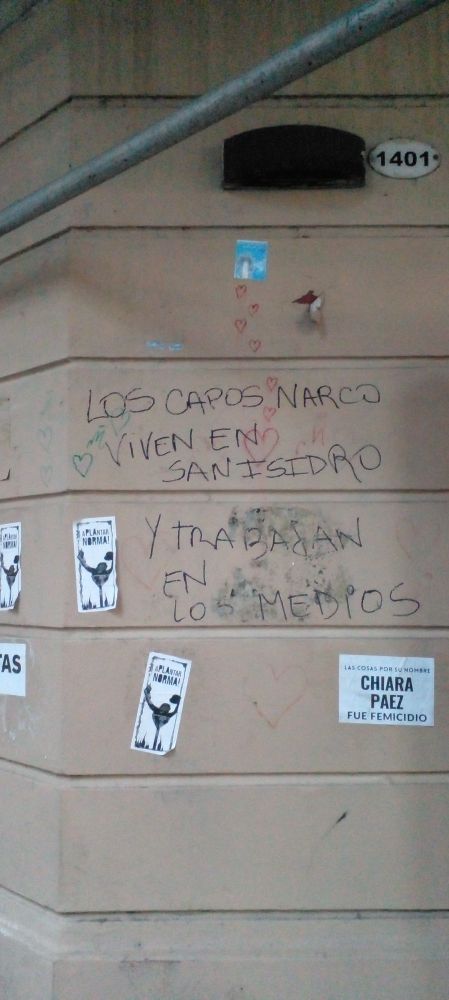 1401
LOS CAPOS NARCO
VIVEN EN
SAN ISIDRO
Y TRABAJAN
EN
LOS MEDIOS
APLANTAR
NORMA!
APLANTAR
NORMA!
TAS
APLANTAR
NORMA!
LAS COSAS POR SU NOMBRE
CHIARA
PAEZ
FUE FEMICIDIO